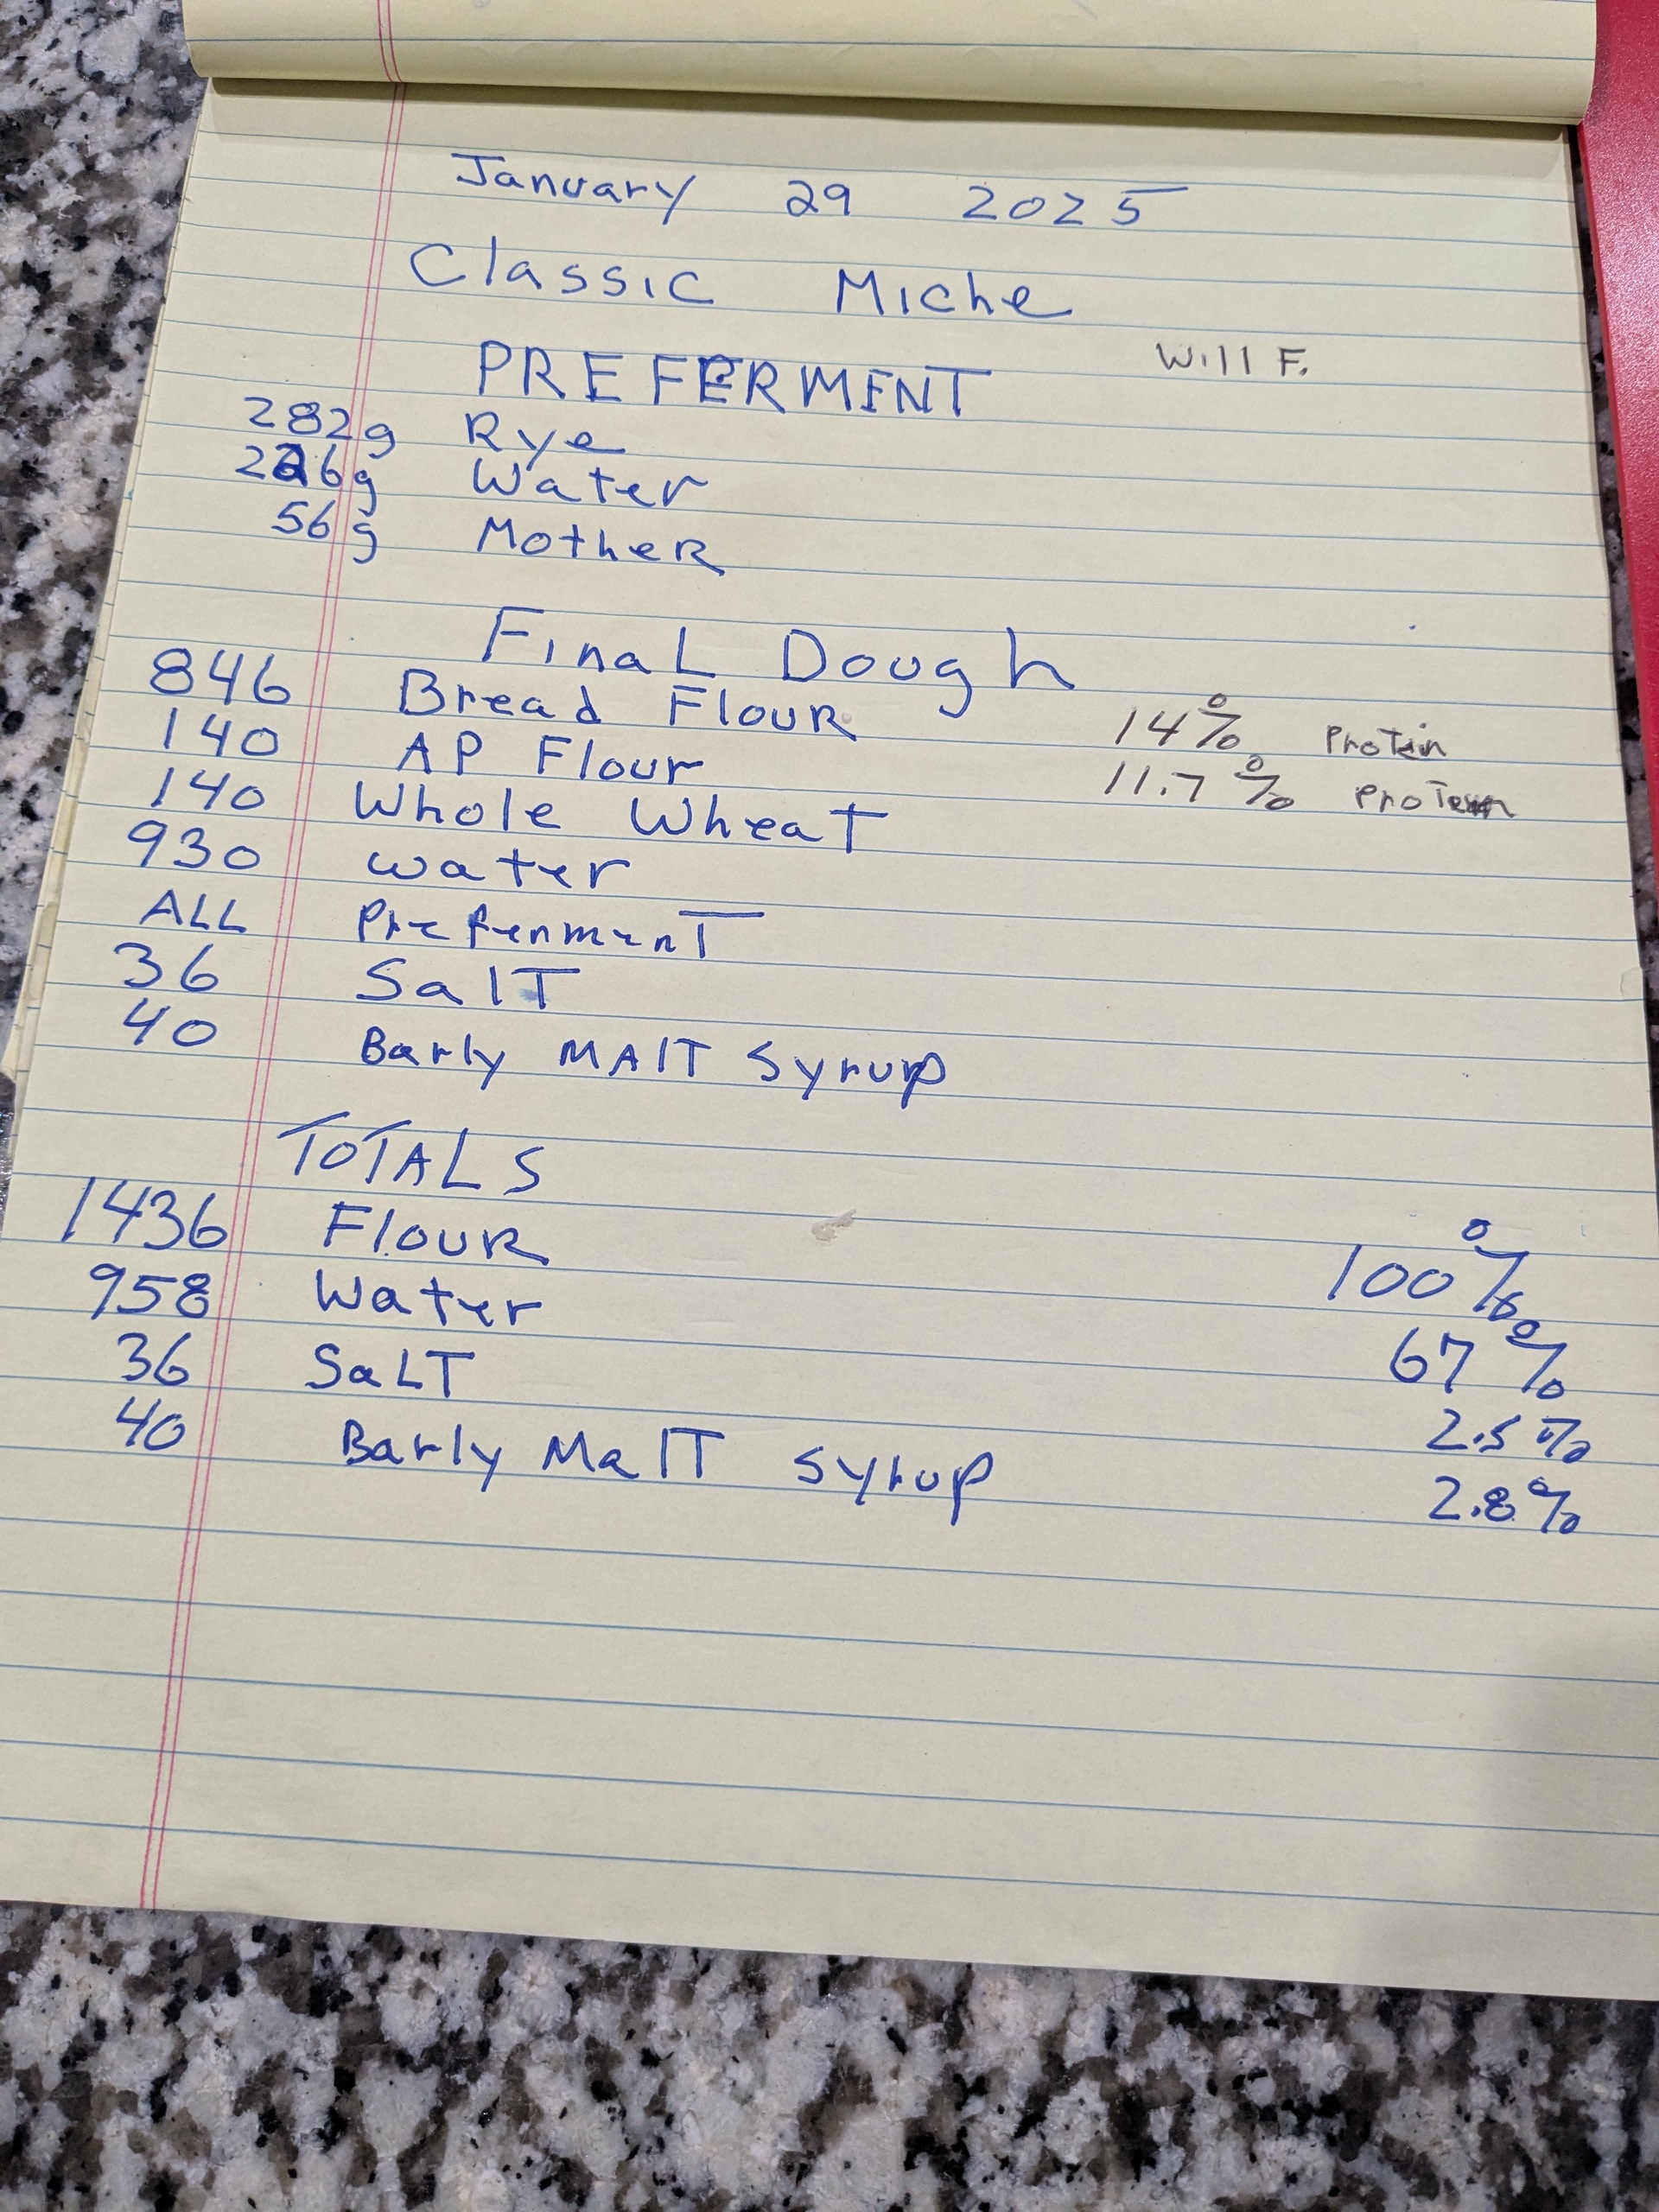 January 29 2025
Classic Miche
Will F.
PREFERMENT
282g Rye
226g Water
56g Mother
Final Dough
846 Bread Flour 14% Protein
140 AP Flour 11.7% Protein
140 Whole Wheat
930 water
ALL Preferment
36 Salt
40 Barly MAlT Syrup
TOTALS
1436 Flour 100%
958 Water 67%
36 SaLT 2.5%
40 Barly MalT syrup 2.8%